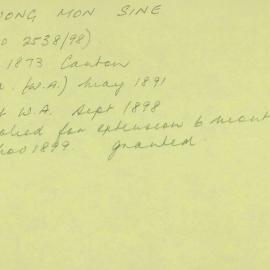 ONG MON SINE
2538/98)
1873 Canton
(W.A.) May 1891
W.A. Sept 1898
for extension 6 mont
Nov 1899. granted.